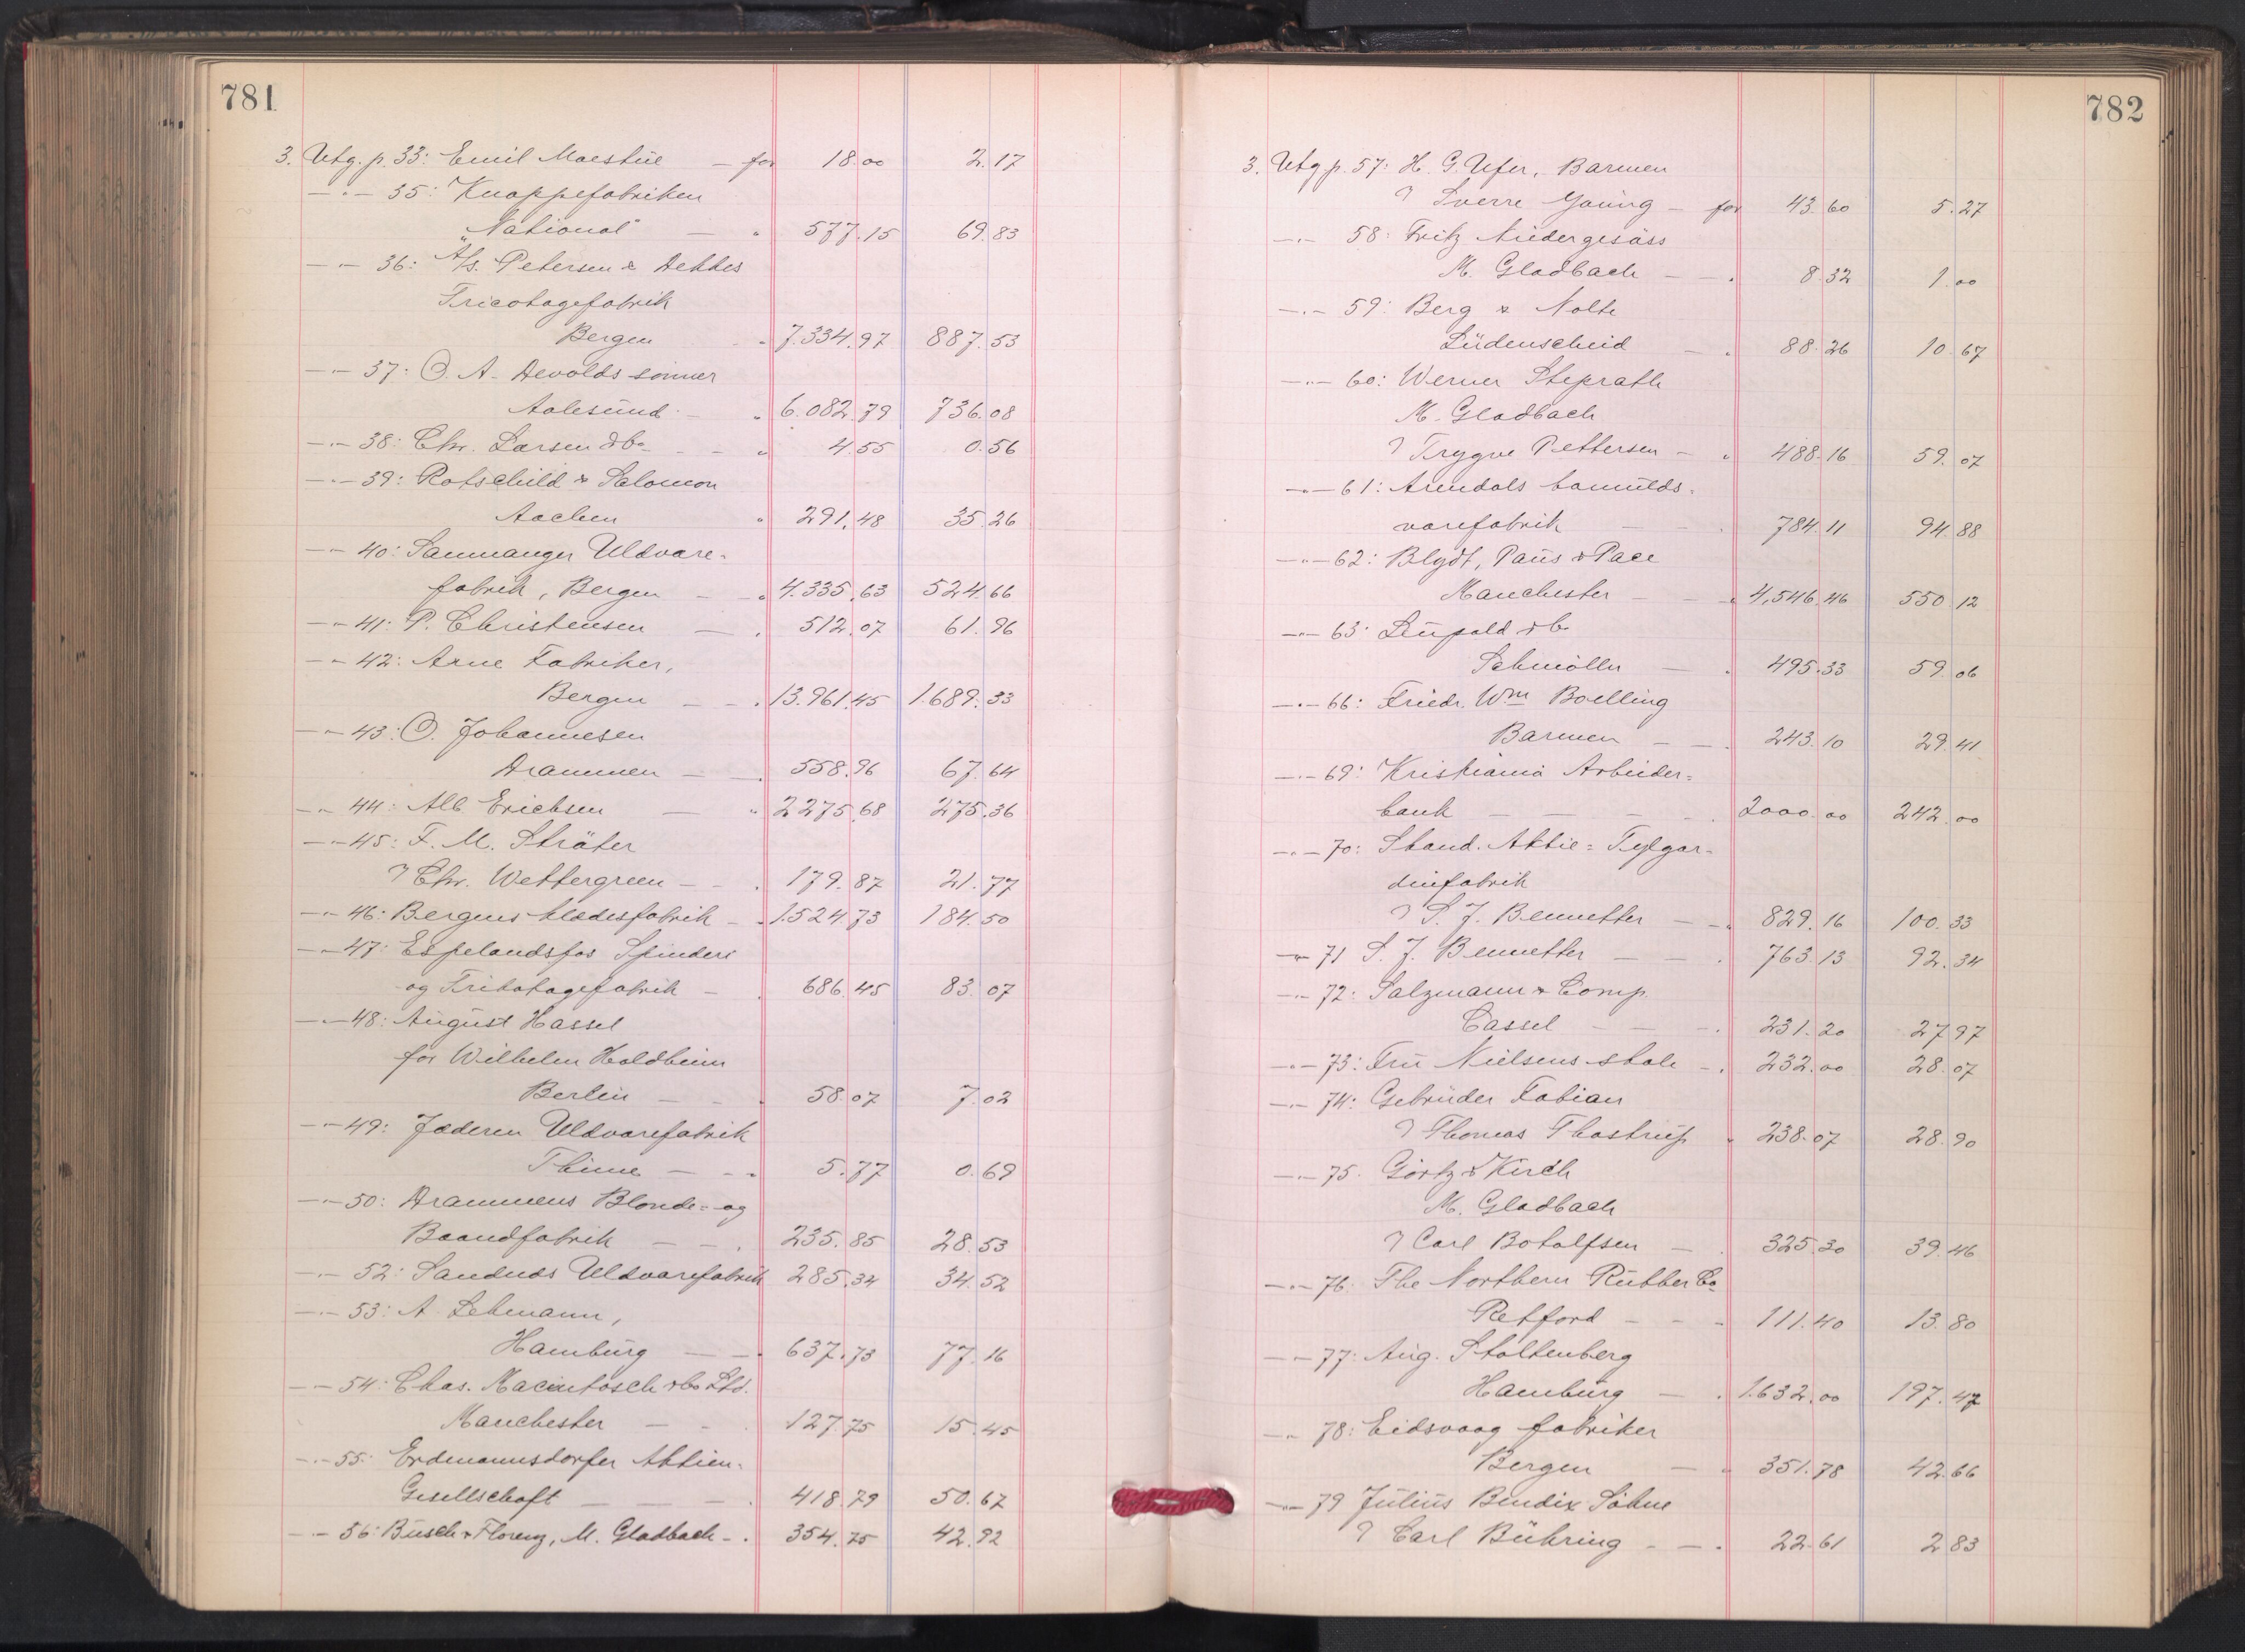 781
3. Utg. p. 33: Emil Moestüe — for 18.00 2.17
—"— 35: Knappefabriken
„National" — " 577.15 69.83
—"— 36: A/s. Petersen & Dekkes
Tricotagefabrik
Bergen " 7.334.97 887.53
—"— 37: O. A. Devolds sönner
Aalesund — " 6.082.79 736.08
—"— 38: Chr. Larsen & Co — " 4.55 0.56
—"— 39: Rotschild & Salomon
Aachen " 291.48 35.26
—"— 40: Sammanger Uldvare-
fabrik, Bergen — " 4.335.63 524.66
—"— 41: P. Christensen — " 512.07 61.96
—"— 42: Arne Fabriker,
Bergen — — " 13.961.45 1.689.33
—"— 43: O. Johannesen
Drammen — — 558.96 67.64
—"— 44: Alb. Erichsen — " 2275.68 275.36
—"— 45: F. M. Sträter
? Chr. Wettergreen — " 179.87 21.77
—"— 46: Bergens klædesfabrik — " 1.524.73 184.50
—"— 47: Espelandsfos Spinderi
og Trikotagefabrik — " 686.45 83.07
—"— 48: August Hassel
for Wilhelm Holdheim
Berlin — — " 58.07 7.02
—"— 49: Jæderen Uldvarefabrik
Thime — — " 5.77 0.69
—"— 50: Drammens Blonde- og
Baandfabrik — — " 235.85 28.53
—"— 52: Sandnes Uldvarefabrik 285.34 34.52
—"— 53: A. Lehmann,
Hamburg — — " 637.73 77.16
—"— 54: Chas. Macintosch & Co Ltd.
Manchester — — " 127.75 15.45
—"— 55: Erdmannsdorfer Aktien-
Gesellschaft — — — " 418.79 50.67
—"— 56: Busch & Florenz, M. Gladbach — " 354.75 42.92
782
3. Utg p. 57: H. G. Ufer, Barmen
? Sverre Young — for 43.60 5.27
—"— 58: Fritz Niedergesäss
M. Gladbach — " 8.32 1.00
—"— 59: Berg & Nolte
Lüdenscheid — " 88.26 10.67
—"— 60: Werner Steprath
M. Gladbach
? Trygve Pettersen — " 488.16 59.07
—"— 61: Arendals bomulds-
varefabrik — — " 784.11 94.88
—"— 62: Blydt, Paus & Pace
Manchester — — " 4,546.46 550.12
—"— 63: Leupold & Co
Schmölln — " 495.33 59.06
—"— 66: Friedr. Wm Boelling
Barmen — — " 243.10 29.41
—"— 69: Kristiania Arbeider-
bank — — — " 2000.00 242.00
—"— 70: Skand. Aktie- Tylgar-
dinfabrik
? S. J. Bennetter — — " 829.16 100.33
—"— 71 S. J. Bennetter — — " 763.13 92.34
—"— 72: Salzmann & Comp.
Cassel — — — " 231.20 27.97
—"— 73: Fru Nielsens skole — " 232.00 28.07
—"— 74: Gebrüder Fabian
? Thomas Thostrup " 238.07 28.90
—"— 75. Görtz & Kirch
M. Gladbach
? Carl Botolfsen — " 325.30 39.46
—"— 76. The Northern Rubber Co
Retford — — — 111.40 13.80
—"— 77: Aug. Stoltenberg
Hamburg — " 1.632.00 197.47
—"— 78: Eidsvaag fabriker
Bergen — " 351.78 42.66
—"— 79 Julius Bendix Söhne
? Carl Bühring — — " 22.61 2.83